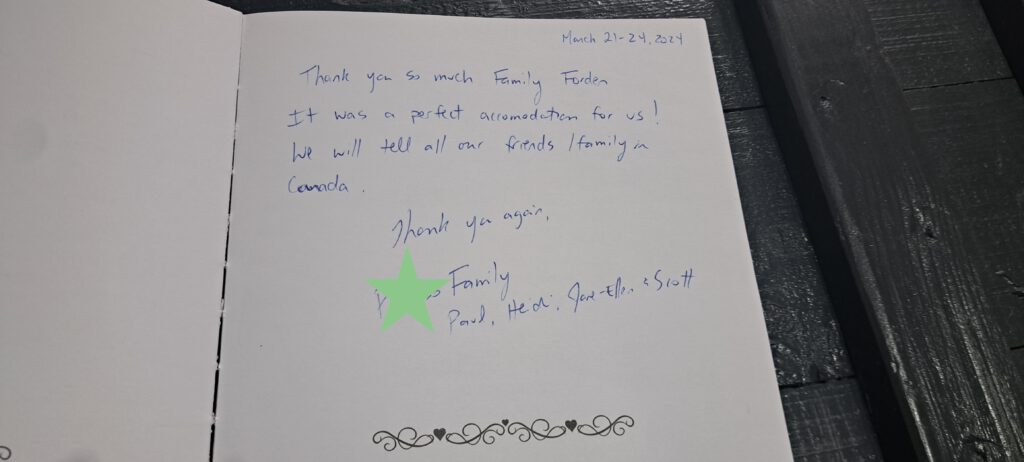 March 21-24, 2024
Thank you so much Family Forden
It was a perfect accomodation for us!
We will tell all our friends /family in
Canada.
Thank you again,
Family
Paul, Heidi, Jane-Ellen & Scott